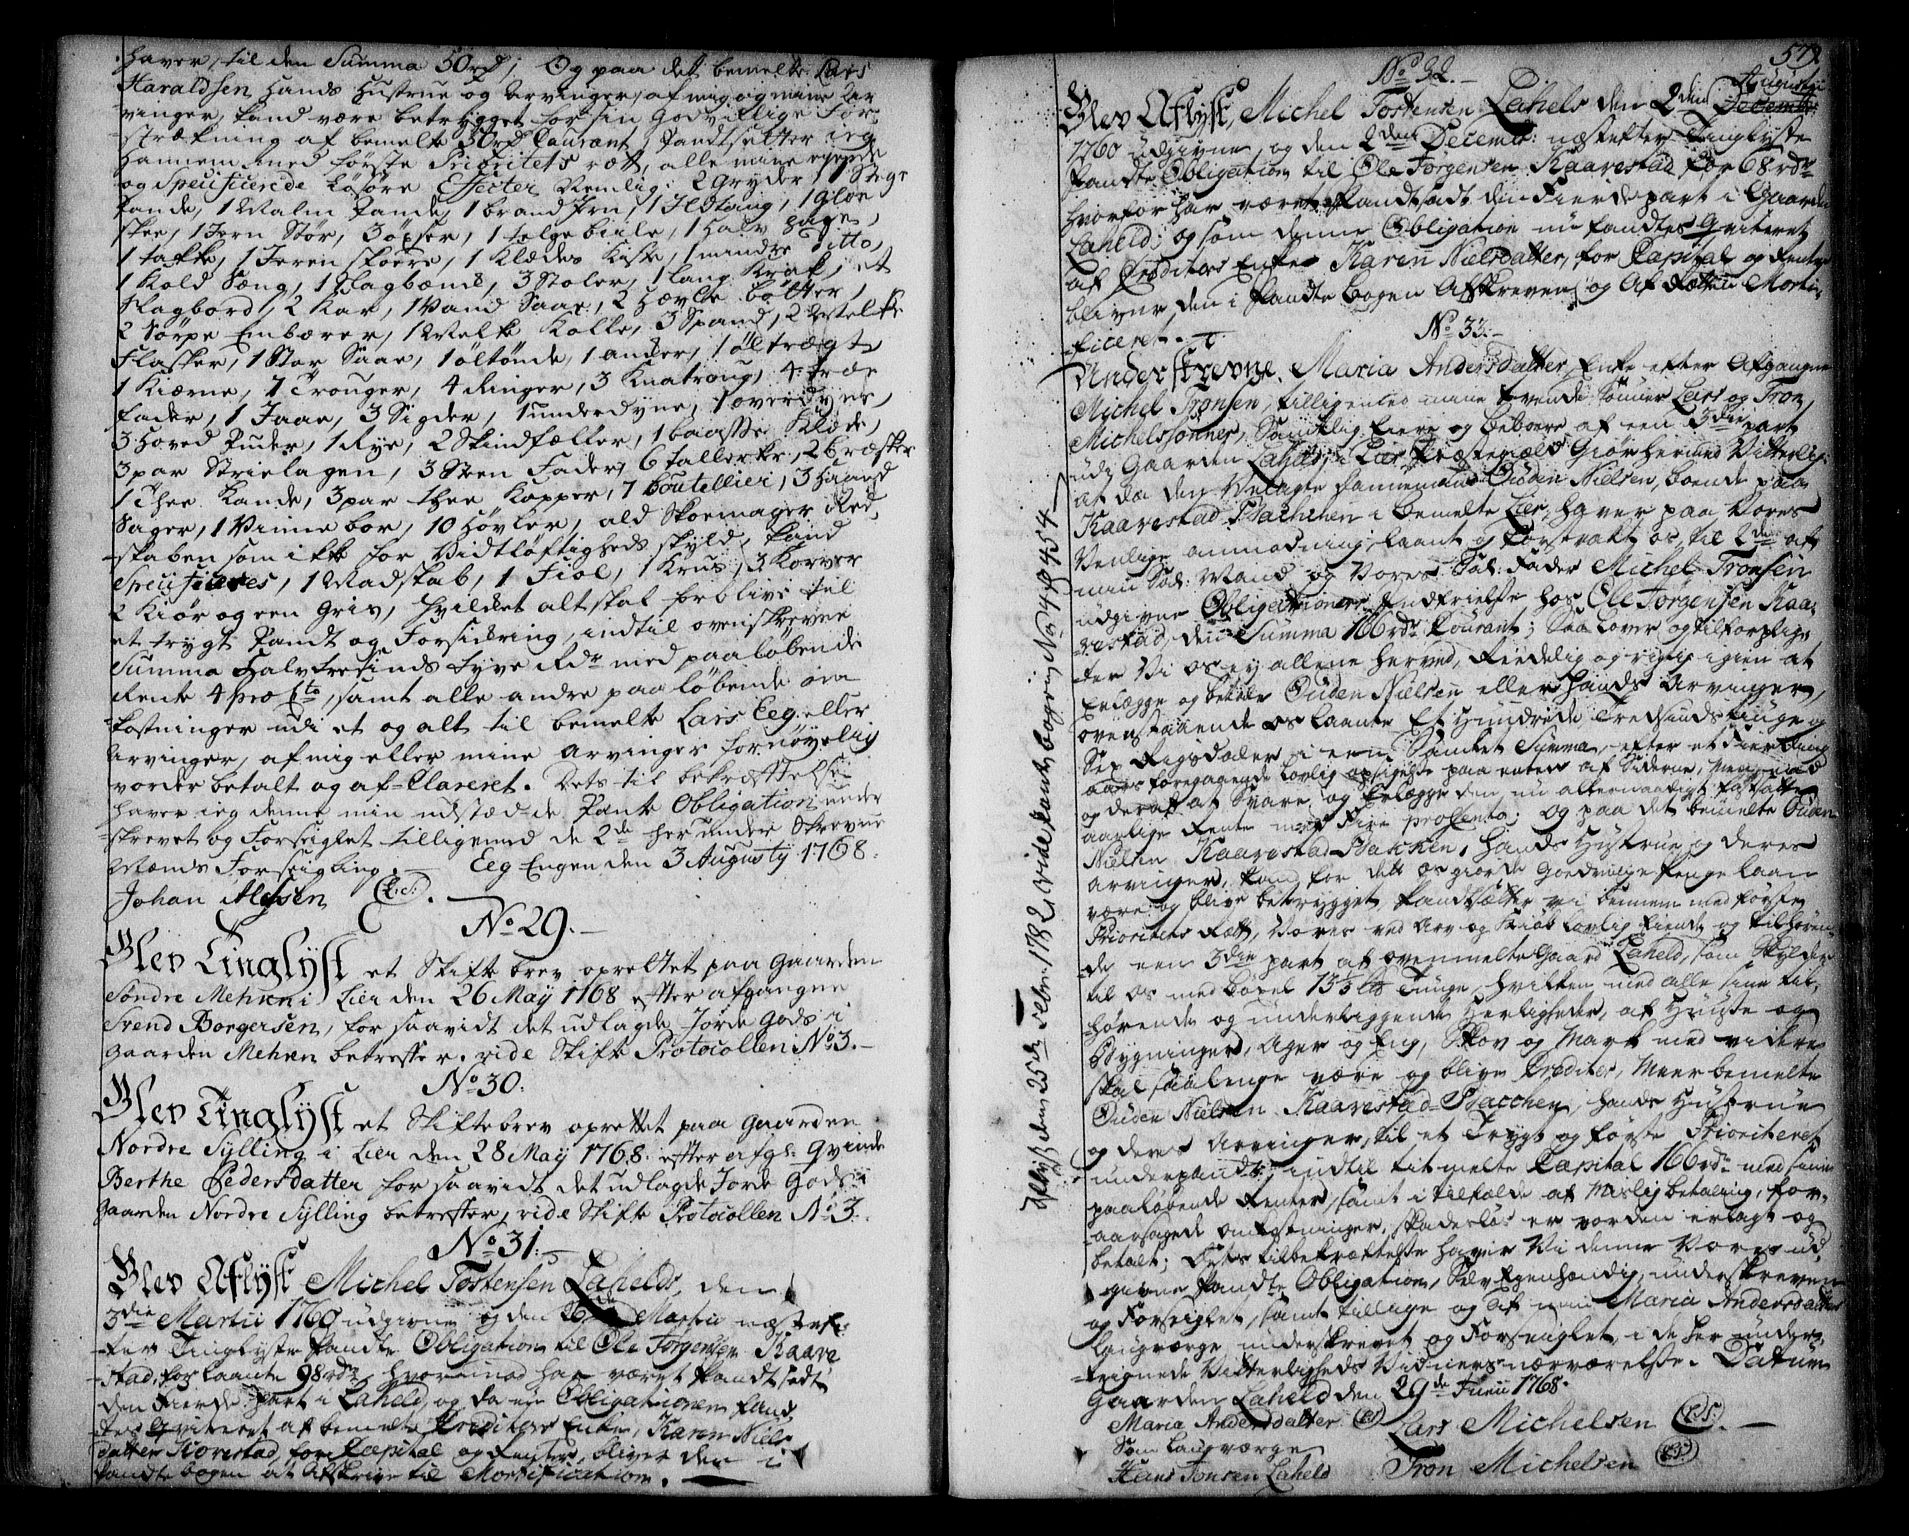 haver, til den Summa 50rd, Og paa det bemelte Lars
Haraldsen hands Hustrue og Arvinger, af mig og mine Ar
vinger, kand være betrygget for sin Godvillige For-
strækning af bemelte 50rd Courant, Pandtsetter ieg
Hannem med første Prioritets rætt, alle mine eyende
og Specificerede Løsøre Effecter Nemlig: 2 Gryder, 1 Stege
Pande, 1 Malm Pande, 1 brand Jrn, 1 Jldtang, 1 Gloe
skee, 1 Jern Stør, 3 øxser, 1 telge biile, 1 Halv
1 takke, 1 Jeren skoere, 1 Klædes Kiste, 1 mindre Ditto,
1 Kold Sæng, 1 Slagbænd, 3 Stoler, 1 lang Krak, et
Slagbord, 2 Kar, 1 Vand Saae, 2 Høvle bøtter,
2 Sørpe Embærer, 1 Melk Kolle, 3 Spand, 2 Melke
Flasker, 1 Stor Saae, 1 øltønde, 1 ander, 1 øl tregt,
1 Kiærne, 7 Trouger, 4 Ringer, 3 Knatroug, 4 træe
fader, 1 Jaar, 3 Sigder, 1 underdyne, 1 overdyne,
3 Hoved Puder, 1 Rye, 2 Skindfæller, 1 baasse Klæde,
3 par Strielagen, 3 Steen Fader, 6 tallerker, 2 br æsker
1 Thee Kande, 3 par thee Kopper, 7 boutellier, 3 Haand
Sager, 1 Vinne bor, 10 Høvler, ald Skoemager Red-
skaben som ikke for Vidtløftigheds skyld, kand
Specificeres, 1 Madskab, 1 Fiol, 1 Krus, 3 Korver
2 Kiør og een Griv, hvilket alt skal forblive til
et trygt Pandt og Forsickring, indtil ovenskrevne
Summa Halvtresinds tyve Rdr med paaløbende
Rente 4 pro Cto, samt alle andre paaløbende om
kostninger udi et og alt til bemelte Lars Eeg eller
Arvinger, af mig eller mine Arvinger fornøyelig
vorder betalt og af-Clareret. Dets til bekræftelse
haver ieg denne min udstædde Pante Obligation under
skrevet og Forseiglet tilligemed de 2de herunder Skrevne
Mænds Forseigling. Eeg Engen den 3 Augusty 1768.
Johan Alfsen (L.S.)
No. 29.
Blev Tinglyst et Skiftebrev oprettet paa Gaarden
Søndre Mehren i Lier den 26 May 1768 efter afgangne
Svend Borgersen, for saavidt det udlagde Jorde Gods i
Gaarden Mehren betreffer. vide Skifte Protocollen No 3.
No 30.
Blev Tinglyst et Skiftebrev oprettet paa Gaarden
Nordre Sylling i Lier den 28 May 1768. efter afg: Qvinde
Berthe Pedersdatter for saavidt det udlagde Jorde Gods i
Gaarden Nordre Sylling betreffer, vide Skifte Protocollen No 3.
No 31.
Blev Aflyst Michel Tostensen Lahelds, den
3die Martii 1760 udgivne og den 26 Martii næstef-
ter Tinglyste Pandte Obligation til Ole Jørgensen Kaare
stad, for laante 98 rdr, hvormed har været Pandtsadt
den Fierde Part i Laheld, og da nu Obligationen fand
tes qviteret af bemelte Creditors Enke, Karen Niels
datter Korestad, for Capital og Renter, bliver den i
Pandtebogen at Afskrive til Mortification.
579
No 32.
Blev Aflyst, Michel Tostensen Lahels den 2den Decembr Augustii
1760 udgivne, og den 2den Decembr: næstefter Tinglyste
Pandte Obligation til Ole Jørgensen Kaarestad for 68 rdr
hvorfor har været Pandtsadt den Fierde part i Gaarden
Laheld; og som denne Obligation nu fandtes Qviteret
af Creditors Enke Karen Nielsdatter, for Capital og Renter
bliver den i Pandte bogen Afskreven og Af Retten Morti-
ficeret.
No 33.
Underskrevne, Maria Andersdatter, Enke efter Afgangne
Michel Tronsen, tilligemed mine 2vende Sønner Lars og Tron
Michelssønner, Samtlig Eiere og beboere af een 3die part
udj Gaarden Laheld i Lier Præstegield Giør hermed Vitterlig
at da den Velagte Dannemand Ouden Nielsen, boende paa
Kaarestad Bachchen i bemelte Lier, haver paa Vores
Venlige anmodning laant og forstrakt os til 2de af
min Sal: Mand og Vores Sal: Fader Michel Tronsen
udgivne Obligationers Jndfrielse hos Ole Jørgensen Kaa-
restad, den Summa 166 rdr Courant; Saa lover og tilforplig-
ter Vi os ey allene herved, Reedelig og rigtig igien at
Erlægge og betale Ouden Nielsen eller hands Arvinger,
ovenstaaende os laante Et Hundrede Tredsindstiuge og
Sex Rigsdaler i een Samlet Summa, efter et Fierding
aars foregaaende lovlig opsigelse paa enten af Siderne, Men
og deraf at Svare og Erlægge den nu allernaadigst fastsatte
aarlige Rente med Fire proCento; og paa det bemelte Ouden
Nielsen Kaarestad Bachen, hands Hustrue og deres
Arvinger, kand for dett os giorde Goedvillige Penge laan
være og blive betrygget, Pandtsætter vi bemem med første
Prioritets Rett, Vores ved Arv og Skiøde lovlig Eiende og tilhøren-
de een 3die part af ovenmelte Gaard Laheld, som skylder
til os med bøxel 13 1/3 lb Tunge, hvilken med alle sine til-
hørende og underliggende Herligheder, af Huuse og
Bygninger, Ager og Eng, Skov og Mark med videre
skal saalenge være og blive Creditor, Meerbemelte
Ouden Nielsen Kaarestad Bacchen, hands Hustrue
og deres Arvinger, til et Trygt og første Prioriteret
underpandt, indtil titmelte Capital 166 rdr med sine
paaløbende Renter, samt i tilfælde af Mislig betaling, for-
aarsagede omkostninger, skadesløs er vorden erlagt og
betalt; Dets tilbekræftelse haver Vi denne Vores ud
givne Pandte Obligation, Selv Egenhændig, underskreven
og Forseiglet, samt tillige og Af min Maria Andersdatters
Laugværge underskrevet og Forseiglet, i de her under-
tegnede Vitterligheds Vidners nærværelse. Datum
Gaarden Laheld den 29de Junii 1768.
Maria Andersdatter (LS) Lars Michelsen (L.S.)
Som Laugværge
Hans Jonsen Laheld Tron Michelsen (L.S.)
Aflyst den 25de Febr: 1782, vide Pantebogen No 4 p 454